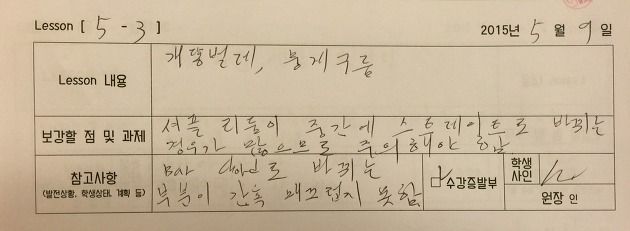 Lesson [ 5 - 3 ] 2015년 5 월 9 일
Lesson 내용 개똥벌레, 뭉게구름
보강할 점 및 과제 셔플 리듬이 중간에 스트레이트로 바뀌는
경우가 많으므로 주의해야 함
참고사항 Bar chord로 바뀌는
(발전상황, 학생상태, 계획 등) 부분이 간혹 매끄럽지 못함
수강증발부
학생
사인
원장 인